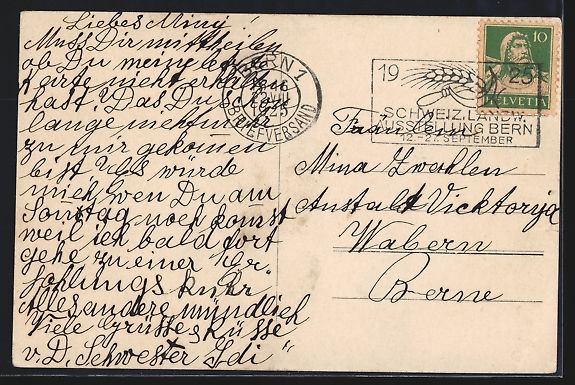 Liebes Miny!
Muss Dir mittheilen
ob Du meine letz
Karte nicht erhalten
hast? Das Du schon
lange nicht mehr
zu mir gekomen
bist? Es würde
mich, wen Du am
Sonntag noch komst
weil ich bald fort
gehe zu einer Er-
hohlungs kuhr
Alles andere mündlich
Viele Grüsse & Küsse
v. D. Schwester Idi"
BERN 1
1925
BRIEFVERSAND
19 25
SCHWEIZ. LANDW.
AUSSTELLUNG BERN
12.-27. SEPTEMBER
10
HELVETIA
Fräulein
Mina Zwahlen
Anstalt Vicktoryia
Wabern
Berne